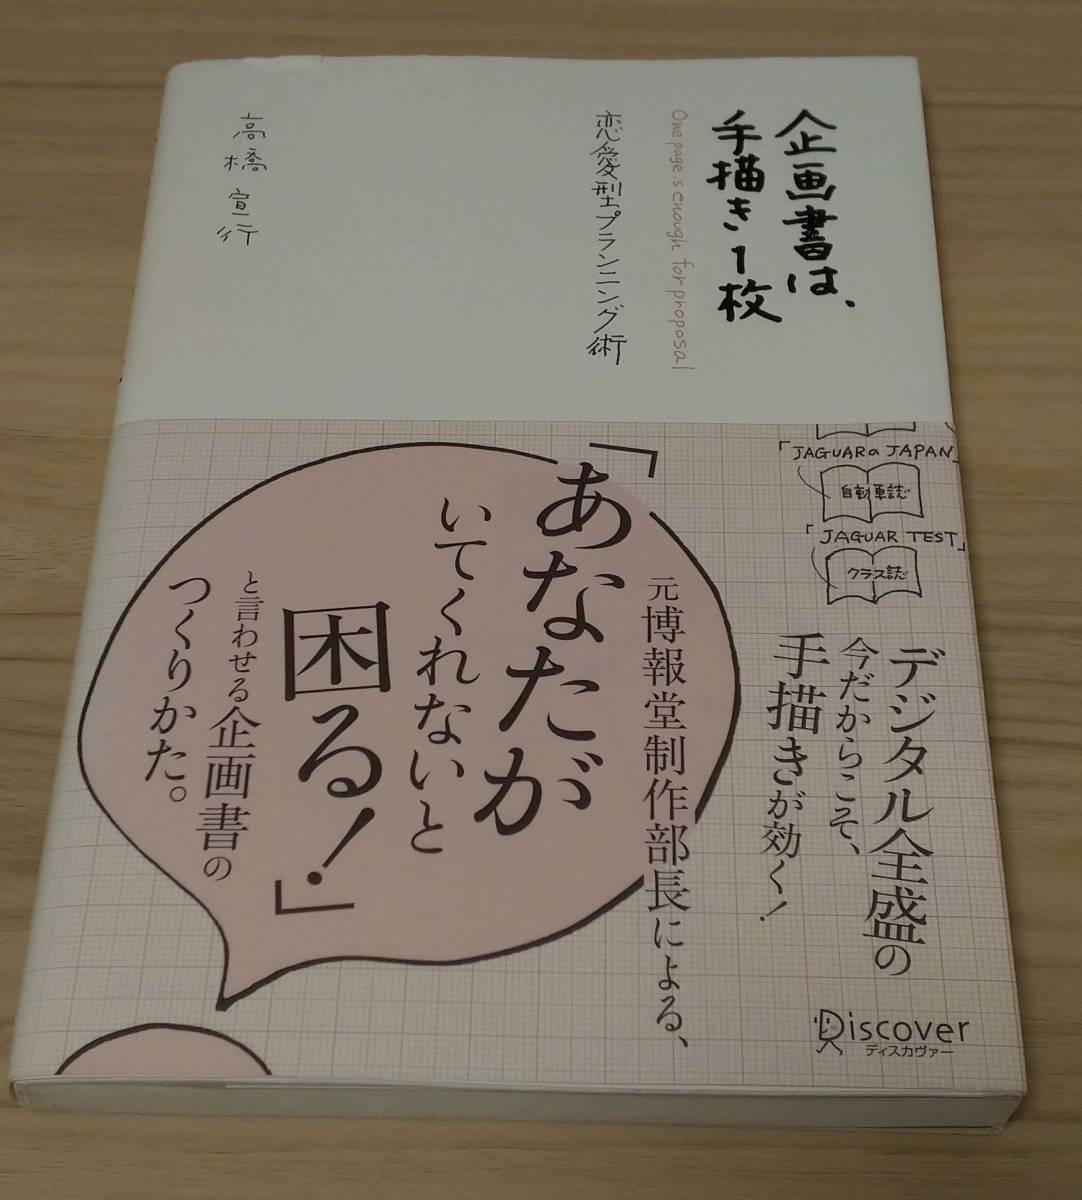 企画書は、
手描き1枚
One page is enough for proposal
恋愛型プランニング術
高橋宣行
「JAGUARの JAPAN」
自動車誌
「JAGUAR TEST」
クラス誌
デジタル全盛の
今だからこそ、
手描きが効く!
元博報堂制作部長による、
「あなたが
いてくれないと
困る!」
と言わせる企画書の
つくりかた。
Discover
ディスカヴァー